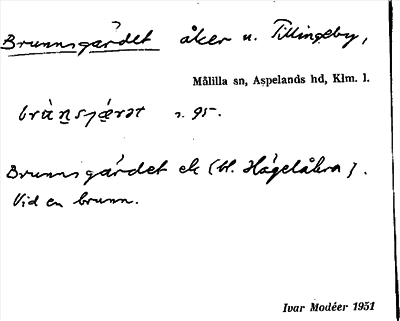 Brunnsgärdet åker u. Tillingeby,
Målilla sn, Aspelands hd, Klm. l.
s. 95.
Brunnsgärdet ek (bl. Hägelåkra).
Vid en brunn.
Ivar Modéer 1931